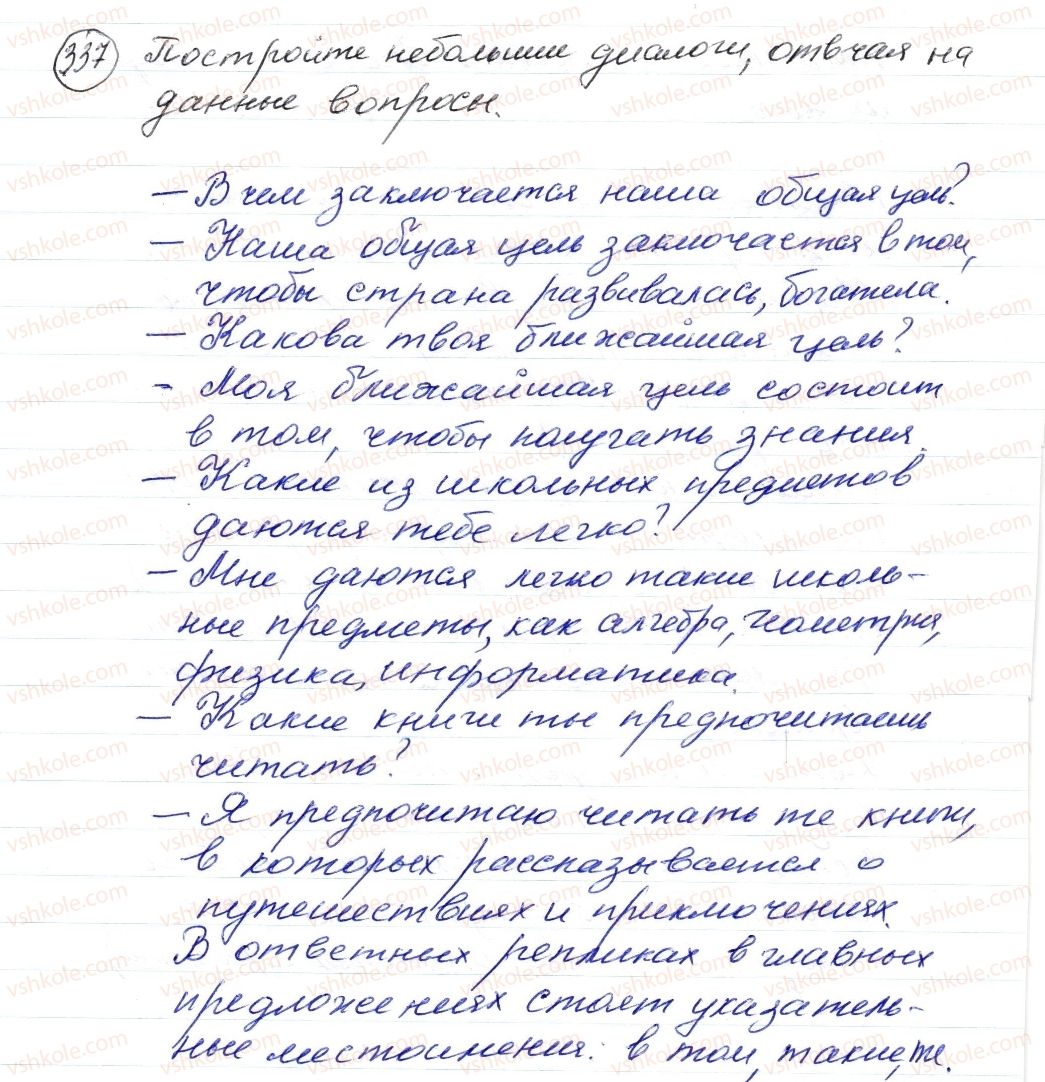 337 Постройте небольшие диалоги, отвчая на
данные вопросы.
— В чем заключается наша общая цель?
— Наша общая цель заключается в том,
чтобы страна развивалась, богатела.
— Какова твоя ближайшая цель?
- Моя ближайшая цель состоит
в том, чтобы получать знания.
— Какие из школьных предметов
даются тебе легко?
— Мне даются легко такие школь-
ные предметы, как алгебра, геометрия,
физика, информатика.
— Какие книги ты предпочитаешь
читать?
— Я предпочитаю читать те книги,
в которых рассказывается о
путешествиях и приключениях.
В ответных репликах в главных
предложениях стоят указатель-
ные местоимения: в том, такие, те.